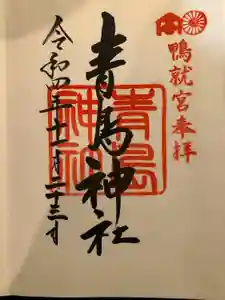 鴨就宮奉拝
青島神社
青島神社
令和四年十一月二十三日